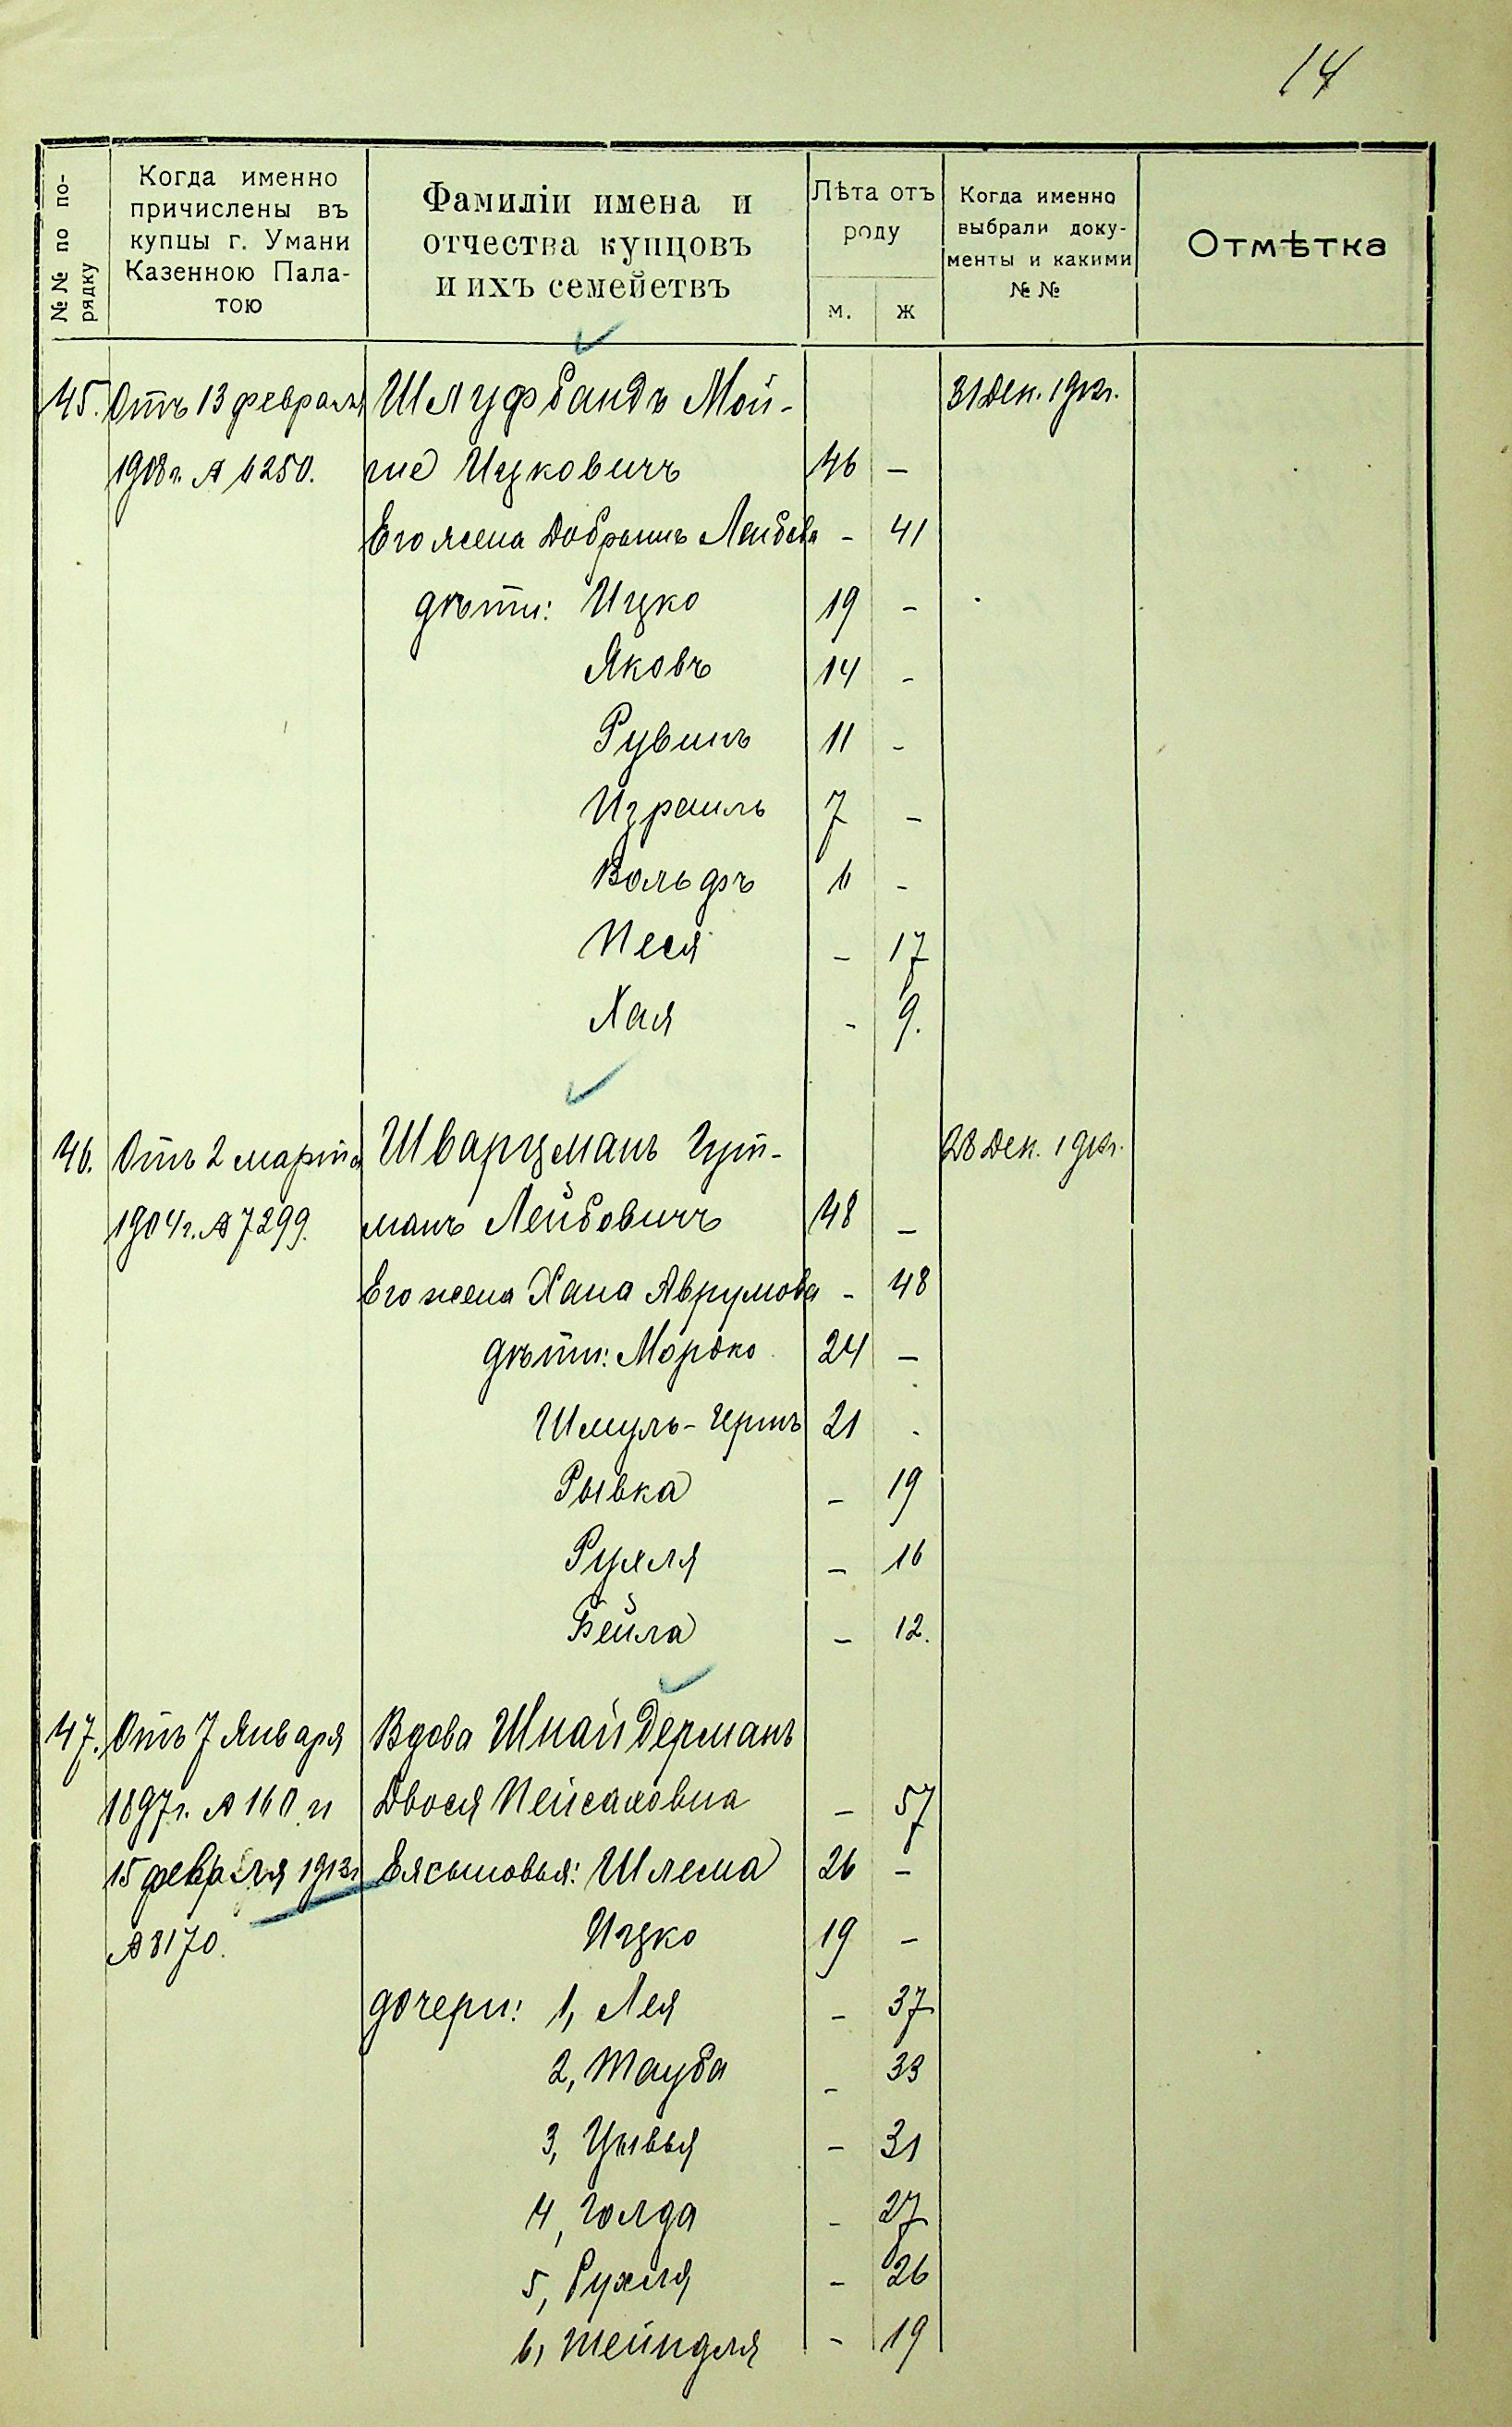 14
№№ по по-
рядку
Когда именно
причислены въ
купцы г. Умани
Казенною Пала-
тою
Фамиліи имена и
отчества купцовъ
и ихъ семействъ
Лѣта отъ
роду
м. ж
Когда именно
выбрали доку-
менты и какими
№ №
Отмѣтка
45. Отъ 13 февраля Шлуфбандъ Мой- 31 Дек. 1912г.
1908г. № 6250. ше Ицковичъ 46 –
Его жена Добрышъ Лейбова – 41
дѣти: Ицко 19 –
Яковъ 14 –
Рувинъ 11 –
Израиль 7 –
Вольфъ 6 –
Песя – 17
Хая – 9.
46. Отъ 2 марта Шварцманъ Гут- 28 Дек. 1912г.
1904г. № 7299. манъ Лейбовичъ 48 –
Его жена Хана Аврумова – 48
дѣти: Мордко 24 –
Шмуль-Гершъ 21 .
Рывка – 19
Рухля – 16
Бейла – 12.
47. Отъ 7 Января Вдова Шнайдерманъ
1897г. № 160 и Двося Пейсаховна – 57
15 февраля 1913г Ея сыновья: Шлема 26 –
№ 8170. Ицко 19 –
дочери: 1, Лея – 37
2, Тауба – 33
3, Цывья – 31
4, Голда – 27
5, Рухля – 26
6, Шейндля – 19